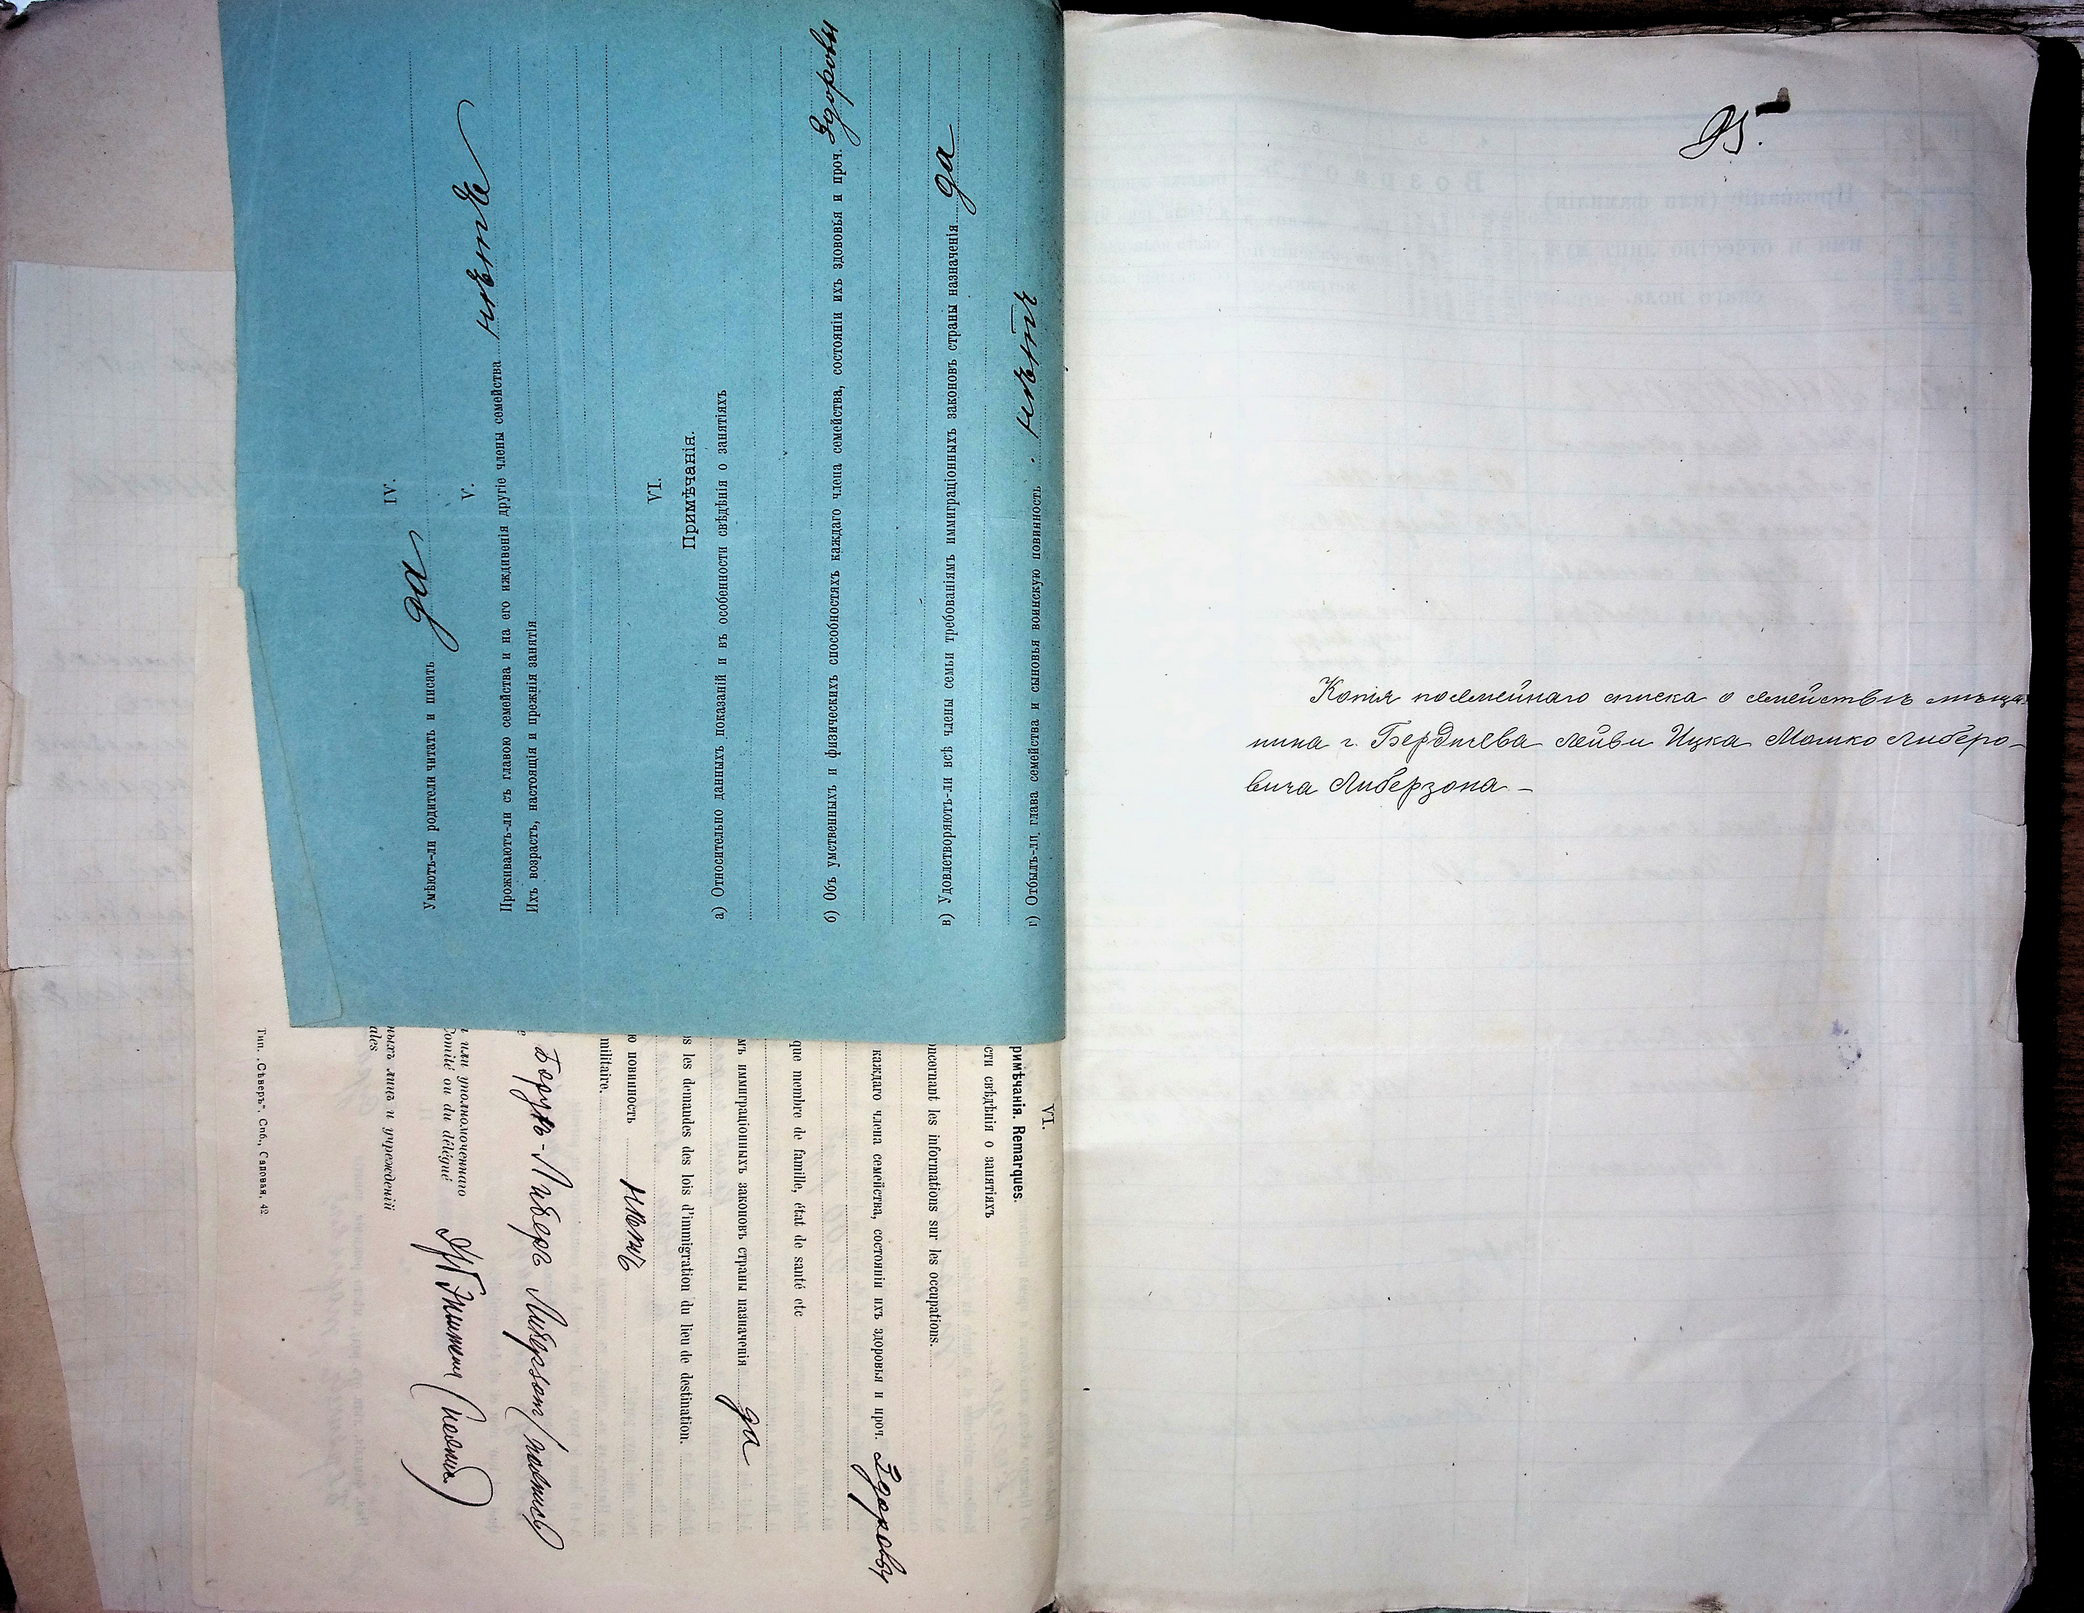 IV.
Умѣютъ-ли родители читать и писать да
V.
Проживаютъ-ли съ главою семейства и на его иждивенія другіе члены семейства нѣтъ
Ихъ возрастъ, настоящія и прежнія занятія
VI.
Примѣчанія.
а) Относительно данныхъ показаній и въ особенности свѣдѣнія о занятіяхъ
б) Объ умственныхъ и физическихъ способностяхъ каждаго члена семейства, состояніи ихъ здововья и проч. Здоровы
в) Удовлетворяютъ-ли всѣ члены семьи требованіямъ иммиграціонныхъ законовъ страны назначенія да
г) Отбылъ-ли глава семейства и сыновья воинскую повинность нѣтъ
VI.
римѣчанія. Remarques.
сти свѣдѣнія о занятіяхъ
oncernant les informations sur les occupations.
каждаго члена семейства, состояніи ихъ здоровья и проч. Здоровы
que membre de famille, état de santé etc
мъ иммиграціонныхъ законовъ страны назначенія да
s les demandes des lois d'immigration du lieu de destination.
ю повинность нѣтъ
militaire.
Борухъ-Либеръ Либерзонъ (подпись)
ъ или уполномоченнаго
Comité ou du délégué
(подпись)
ныхъ лицъ и учрежденій
ales
Тип. „Сѣверъ", Спб., Садовая, 42
95.
Копія посемейнаго списка о семействѣ мѣща
нина г. Бердичева Лейви Ицка Мошко Либеро-
вича Либерзона –